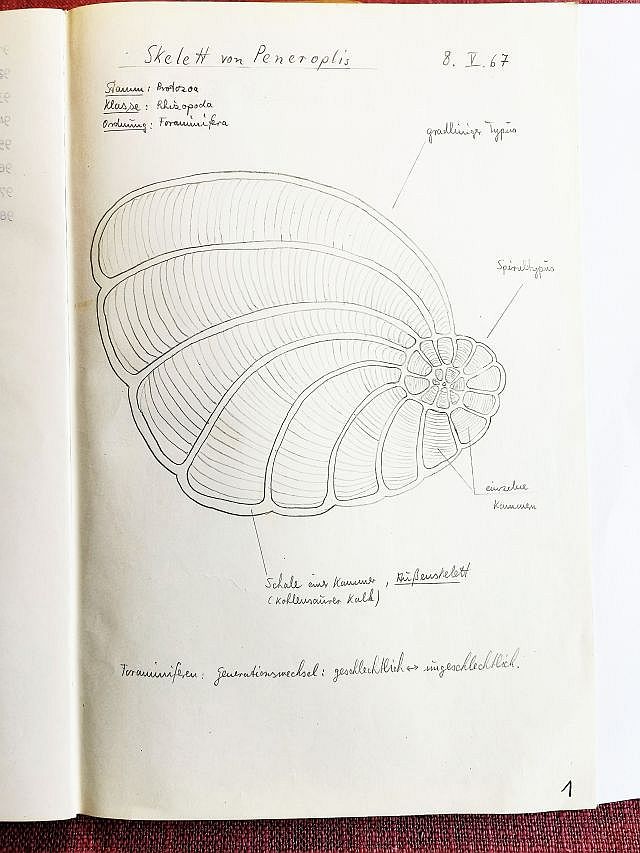 Skelett von Peneroplis
8. V. 67
Stamm: Protozoa
Klasse: Rhizopoda
Ordnung: Foraminifera
gradliniger Typus
Spiraltypus
einzelne
Kammern
Schale einer Kammer, Außenskelett
(Kohlensaurer Kalk)
Foraminiferen: Generationswechsel: geschlechtlich ↔ ungeschlechtlich.
1